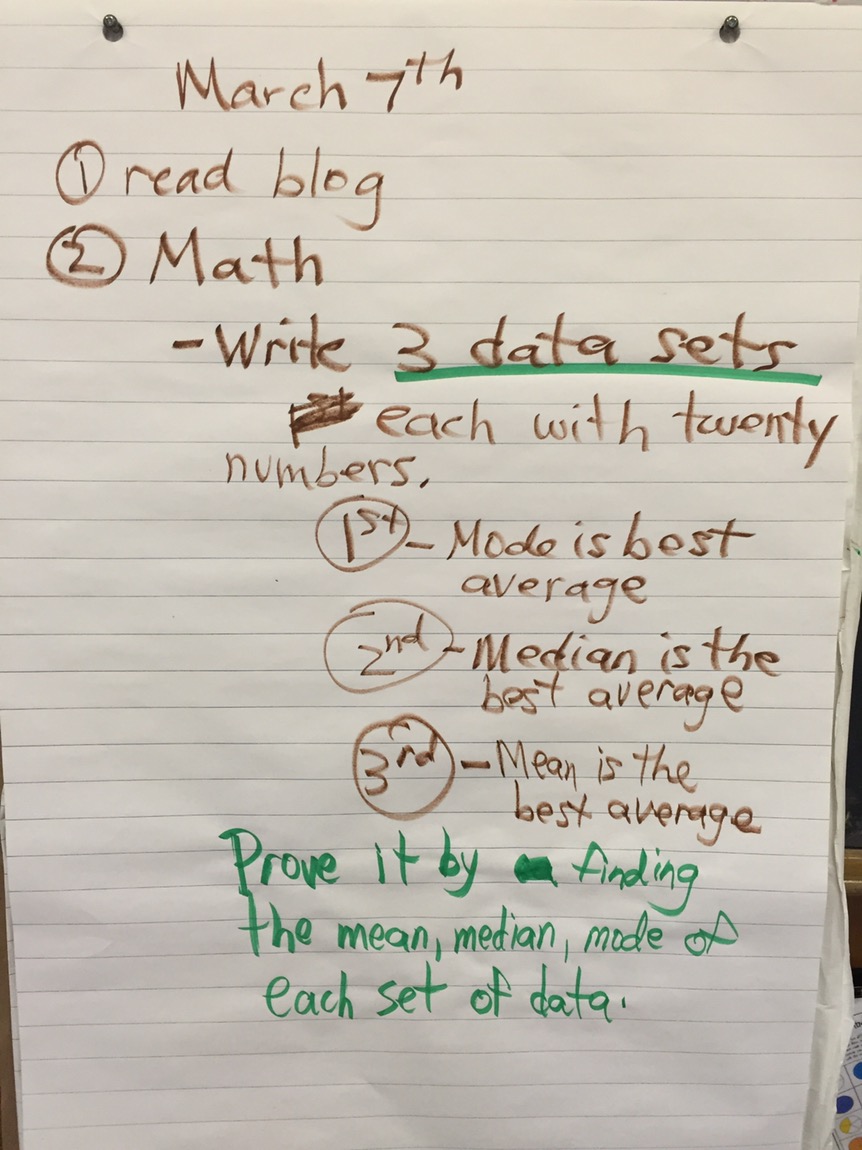 March 7th
① read blog
② Math
- Write 3 data sets
each with twenty
numbers.
1st - Mode is best
average
2nd - Median is the
best average
3rd - Mean is the
best average
Prove it by finding
the mean, median, mode of
each set of data.